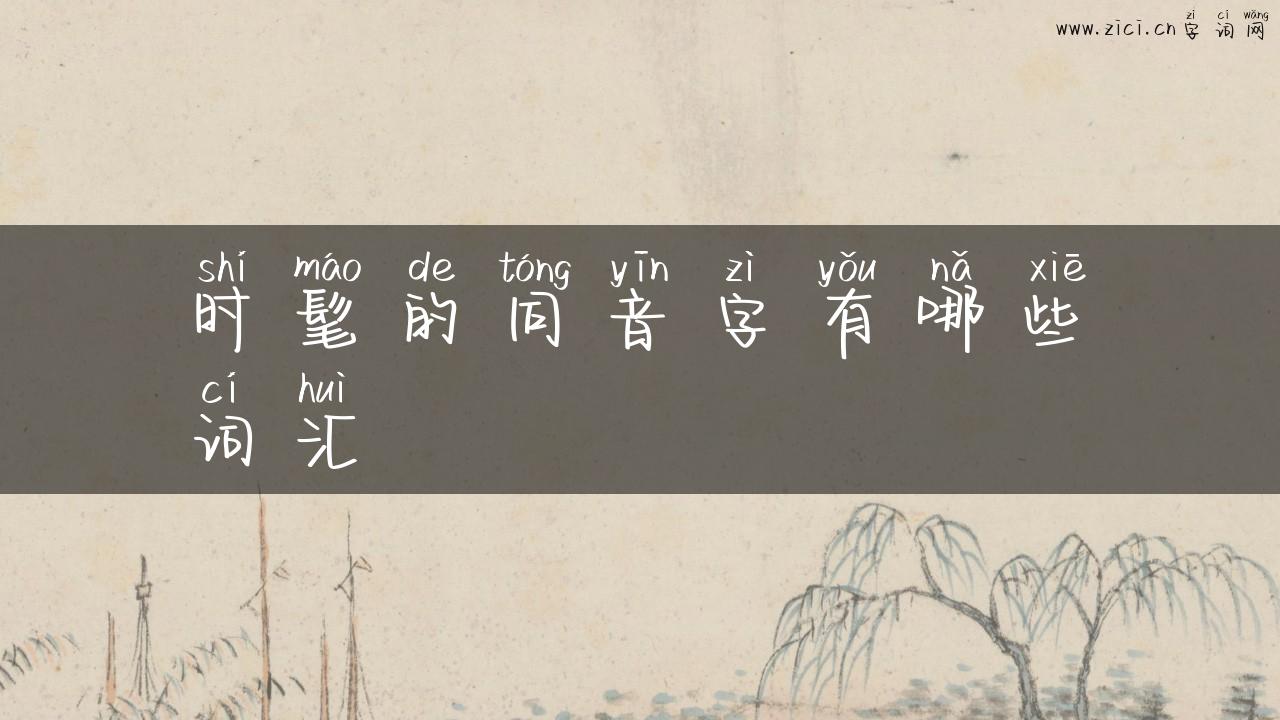 zì cí wǎng
www.zici.cn 字 词 网
shí máo de tóng yīn zì yǒu nǎ xiē
时 髦 的 同 音 字 有 哪 些
cí huì
词 汇